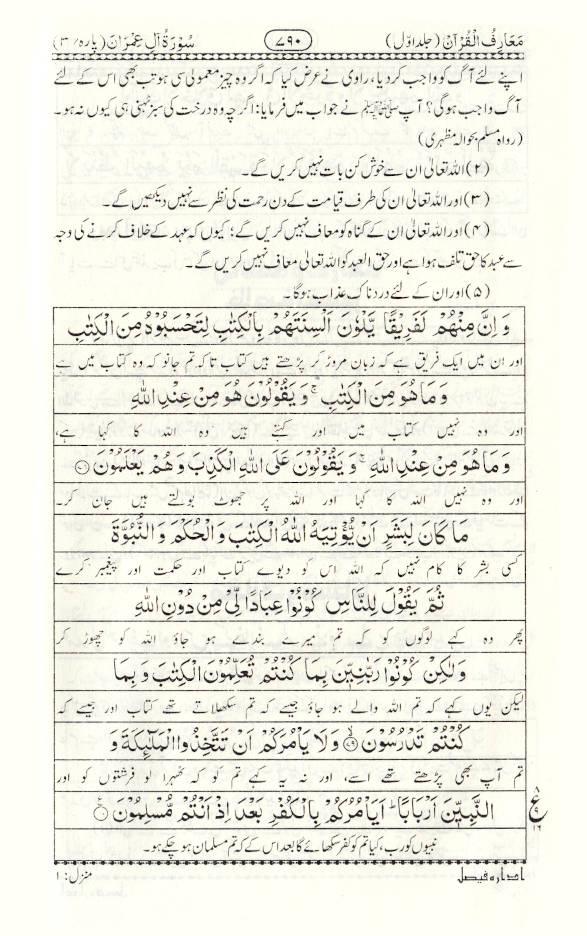 معارف القرآن (جلد اول)
۷۹۰
سورۃ آل عمران (پارہ/۳)
اپنے لئے آگ کو واجب کر دیا، راوی نے عرض کیا کہ اگر وہ چیز معمولی سی ہو تب بھی اس کے لئے
آگ واجب ہوگی؟ آپ ﷺ نے جواب میں فرمایا: اگرچہ وہ درخت کی سبز ٹہنی ہی کیوں نہ ہو۔
(رواہ مسلم بحوالہ مظہری)
(۲) اللہ تعالیٰ ان سے خوش کن بات نہیں کریں گے۔
(۳) اور اللہ تعالیٰ ان کی طرف قیامت کے دن رحمت کی نظر سے نہیں دیکھیں گے۔
(۴) اور اللہ تعالیٰ ان کے گناہ کو معاف نہیں کریں گے؛ کیوں کہ عہد کے خلاف کرنے کی وجہ
سے عبد کا حق تلف ہوا ہے اور حق العبد کو اللہ تعالیٰ معاف نہیں کریں گے۔
(۵) اور ان کے لئے درد ناک عذاب ہوگا۔
وَاِنَّ مِنْهُمْ لَفَرِيْقًا يَّلْوٗنَ اَلْسِنَتَهُمْ بِالْكِتٰبِ لِتَحْسَبُوْهُ مِنَ الْكِتٰبِ
اور ان میں ایک فریق ہے کہ زبان مروڑ کر پڑھتے ہیں کتاب تاکہ تم جانو کہ وہ کتاب میں ہے
وَمَا هُوَ مِنَ الْكِتٰبِ ۚ وَيَقُوْلُوْنَ هُوَ مِنْ عِنْدِ اللّٰهِ
اور وہ نہیں کتاب میں اور کہتے ہیں وہ اللہ کا کہا ہے،
وَمَا هُوَ مِنْ عِنْدِ اللّٰهِ ۚ وَيَقُوْلُوْنَ عَلَى اللّٰهِ الْكَذِبَ وَهُمْ يَعْلَمُوْنَ
اور وہ نہیں اللہ کا کہا اور اللہ پر جھوٹ بولتے ہیں جان کر۔
مَا كَانَ لِبَشَرٍ اَنْ يُّؤْتِيَهُ اللّٰهُ الْكِتٰبَ وَالْحُكْمَ وَالنُّبُوَّةَ
کسی بشر کا کام نہیں کہ اللہ اس کو دیوے کتاب اور حکمت اور پیغمبر کرے
ثُمَّ يَقُوْلَ لِلنَّاسِ كُوْنُوْا عِبَادًا لِّيْ مِنْ دُوْنِ اللّٰهِ
پھر وہ کہے لوگوں کو کہ تم میرے بندے ہو جاؤ اللہ کو چھوڑ کر
وَلٰكِنْ كُوْنُوْا رَبّٰنِيّٖنَ بِمَا كُنْتُمْ تُعَلِّمُوْنَ الْكِتٰبَ وَبِمَا
لیکن یوں کہے کہ تم اللہ والے ہو جاؤ جیسے کہ تم سکھلاتے تھے کتاب اور جیسے کہ
كُنْتُمْ تَدْرُسُوْنَ ۙ۷۹ وَلَا يَاْمُرَكُمْ اَنْ تَتَّخِذُوا الْمَلٰٓئِكَةَ وَ
تم آپ بھی پڑھتے تھے اسے، اور نہ یہ کہے تم کو کہ ٹھہرا لو فرشتوں کو اور
النَّبِيّٖنَ اَرْبَابًا ؕ اَيَاْمُرُكُمْ بِالْكُفْرِ بَعْدَ اِذْ اَنْتُمْ مُّسْلِمُوْنَ
ع
۱۶
نبیوں کو رب، کیا تم کو کفر سکھائے گا بعد اس کے کہ تم مسلمان ہو چکے ہو۔
ادارہ فیصل
منزل: ۱